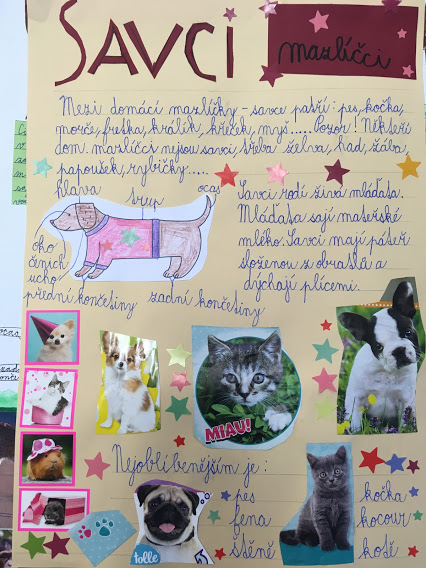 SAVCI
mazlíčci
Mezi domácí mazlíčky - savce patří: pes, kočka,
morče, fretka, králík, křeček, myš..... Pozor! Někteří
dom. mazlíčci nejsou savci, třeba želva, had, žába,
papoušek, rybičky....
hlava trup ocas
oko
čenich
ucho
přední končetiny zadní končetiny
Savci rodí živá mláďata.
Mláďata sají mateřské
mléko. Savci mají páteř
složenou z obratlů a
dýchají plícemi.
MIAU!
Nejoblíbenějším je:
pes
fena
štěně
kočka
kocour
kotě
tolle